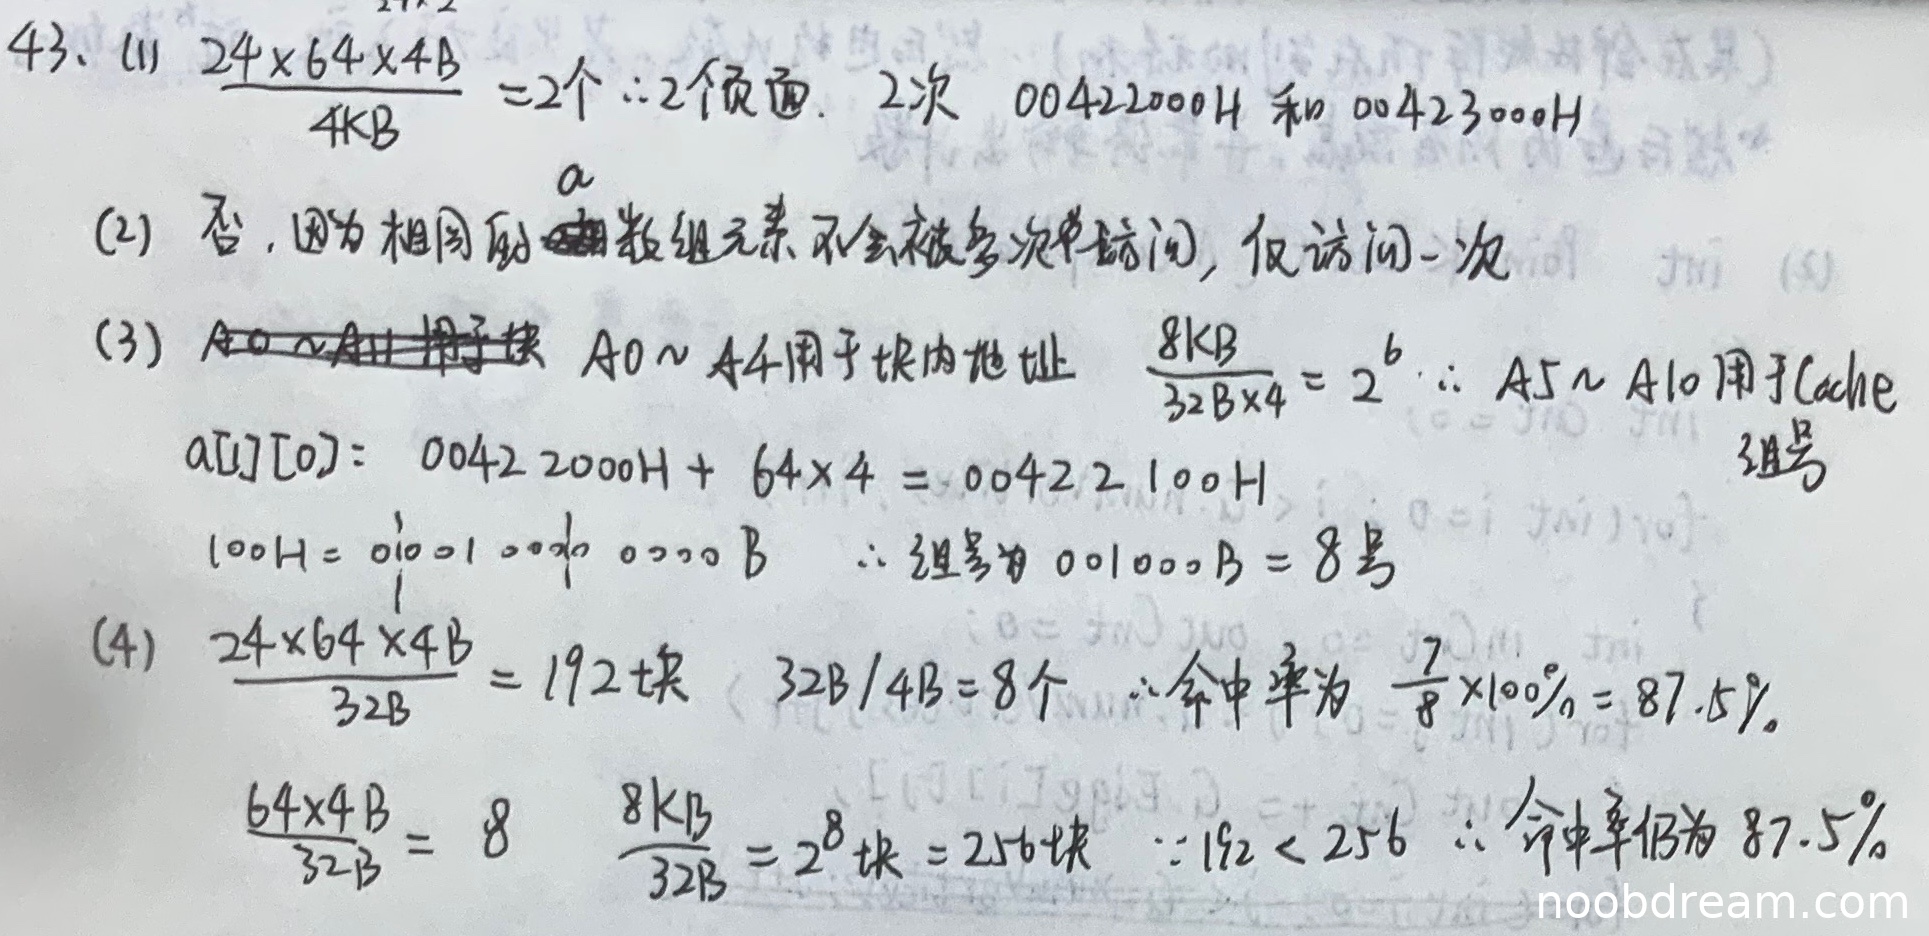 43、(1) 24×64×4B / 4KB =2个 ∴2个页面. 2次 00422000H 和 00423000H
a
(2) 否，因为相同的数组元素不会被多次访问，仅访问一次
(3) A0~A11用于块 A0~A4用于块内地址 8KB / 32B×4 = 2^6 ∴ A5~A10用于Cache
组号
a[1][0]: 00422000H + 64×4 = 00422100H
100H = 0000 B ∴ 组号为 001000B = 8号
(4) 24×64×4B / 32B = 192块 32B/4B=8个 ∴命中率为 7/8 ×100%=87.5%
64×4B / 32B = 8 8KB / 32B = 2^8块=256块 ∵192<256 ∴命中率仍为 87.5%
noobdream.com